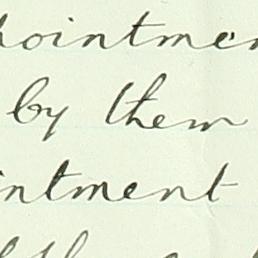 pointmen
by them
intment